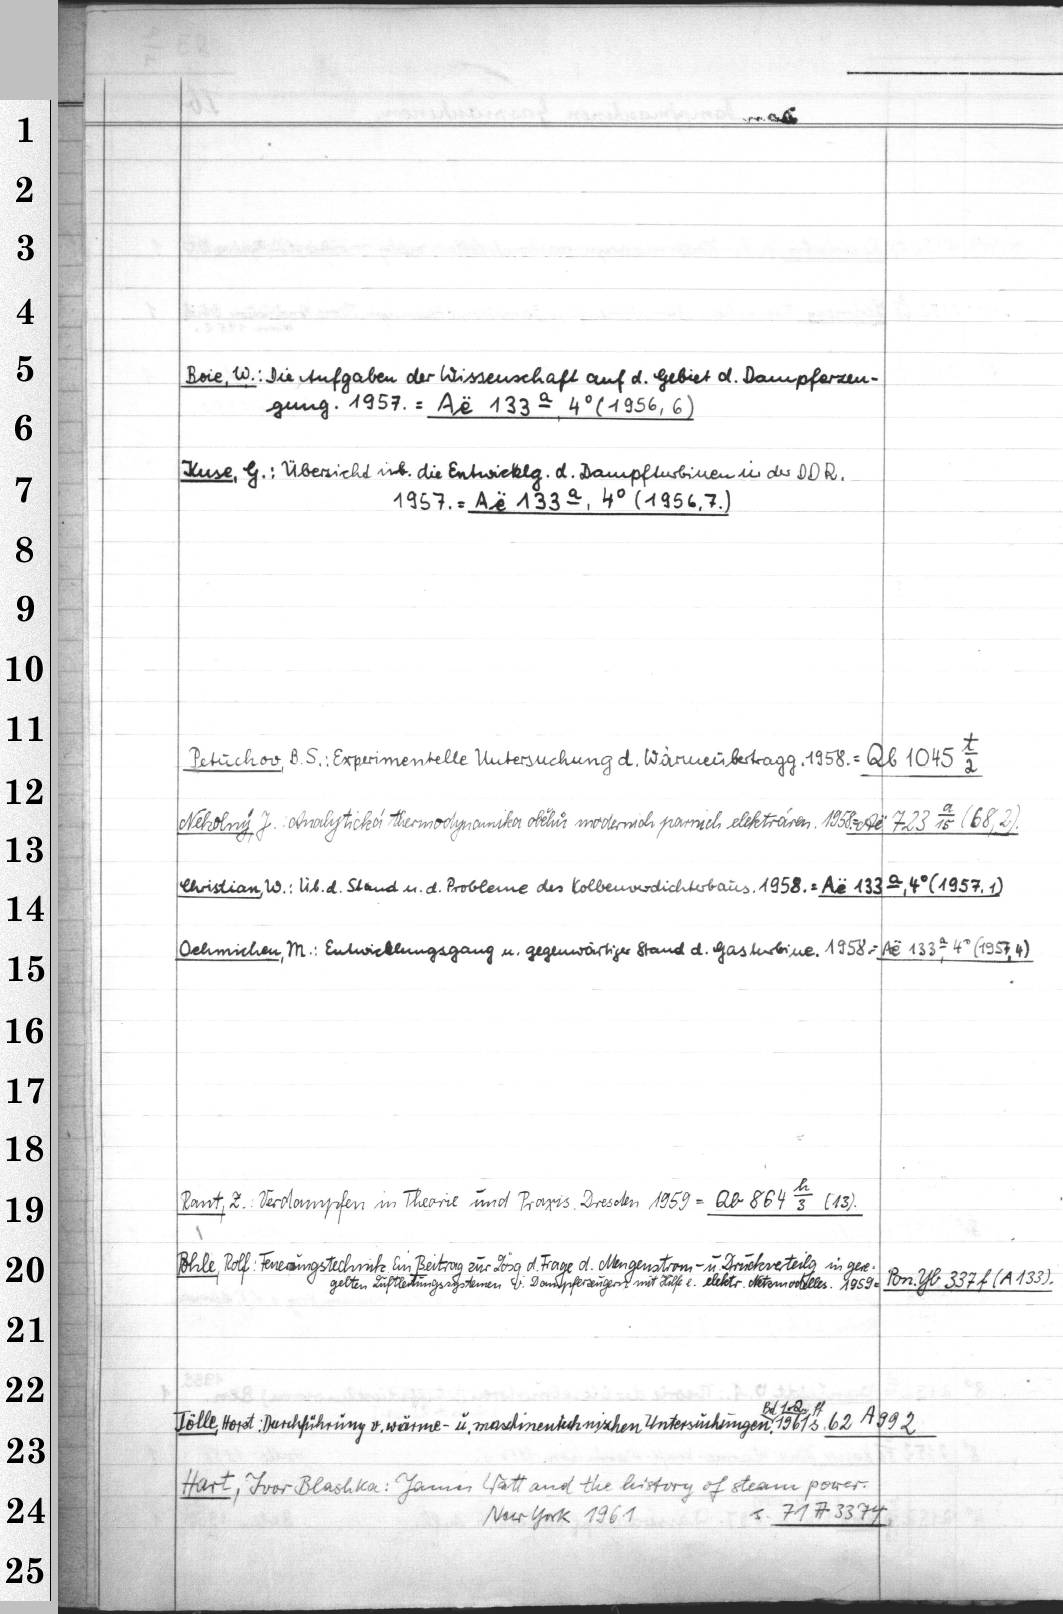 1
2
3
4
5
Boie, W.: Die Aufgaben der Wissenschaft auf d. Gebiet d. Dampferzeu-
gung. 1957. = Aë 133 a, 4° (1956, 6)
6
Kuse, G.: Übersicht üb. die Entwicklg. d. Dampfturbinen in der DDR.
7
1957. = Aë 133 a, 4° (1956, 7.)
8
9
10
11
Petuchov, B.S.: Experimentelle Untersuchung d. Wärmeübertragg. 1958. = Qb 1045 t/2
12
Nekolný, J.: Analytická thermodynamika oběhů moderních parních elektráren. 1958 = Aë 723 a/15 (68,2).
13
Christian, W.: Üb. d. Stand u. d. Probleme des Kolbenverdichterbaus. 1958. = Aë 133 a, 4° (1957, 1)
14
Oehmichen, M.: Entwicklungsgang u. gegenwärtiger Stand d. Gasturbine. 1958 = Aë 133 a, 4° (1957, 4)
15
16
17
18
Rant, Z.: Verdampfen in Theorie und Praxis. Dresden 1959 = Qb 864 h/3 (13).
19
Pohle, Rolf: Feuerungstechnik. Ein Beitrag zur Lösg d. Frage d. Mengenstrom- u. Druckverteilg in gere-
20
gelten Luftleitungssystemen v. Dampferzeugern mit Hilfe e. elektr. Netzmodelles. 1959 = Pon. Yb 337 f (A 133).
21
22
Bd 1. 2 ff
Tölle, Horst: Durchführung v. wärme- u. maschinentechnischen Untersuchungen. 1961 s. 62 A 992
23
Hart, Ivor Blashka: James Watt and the history of steam power.
24
New York 1961 s. 71 A 3374
25